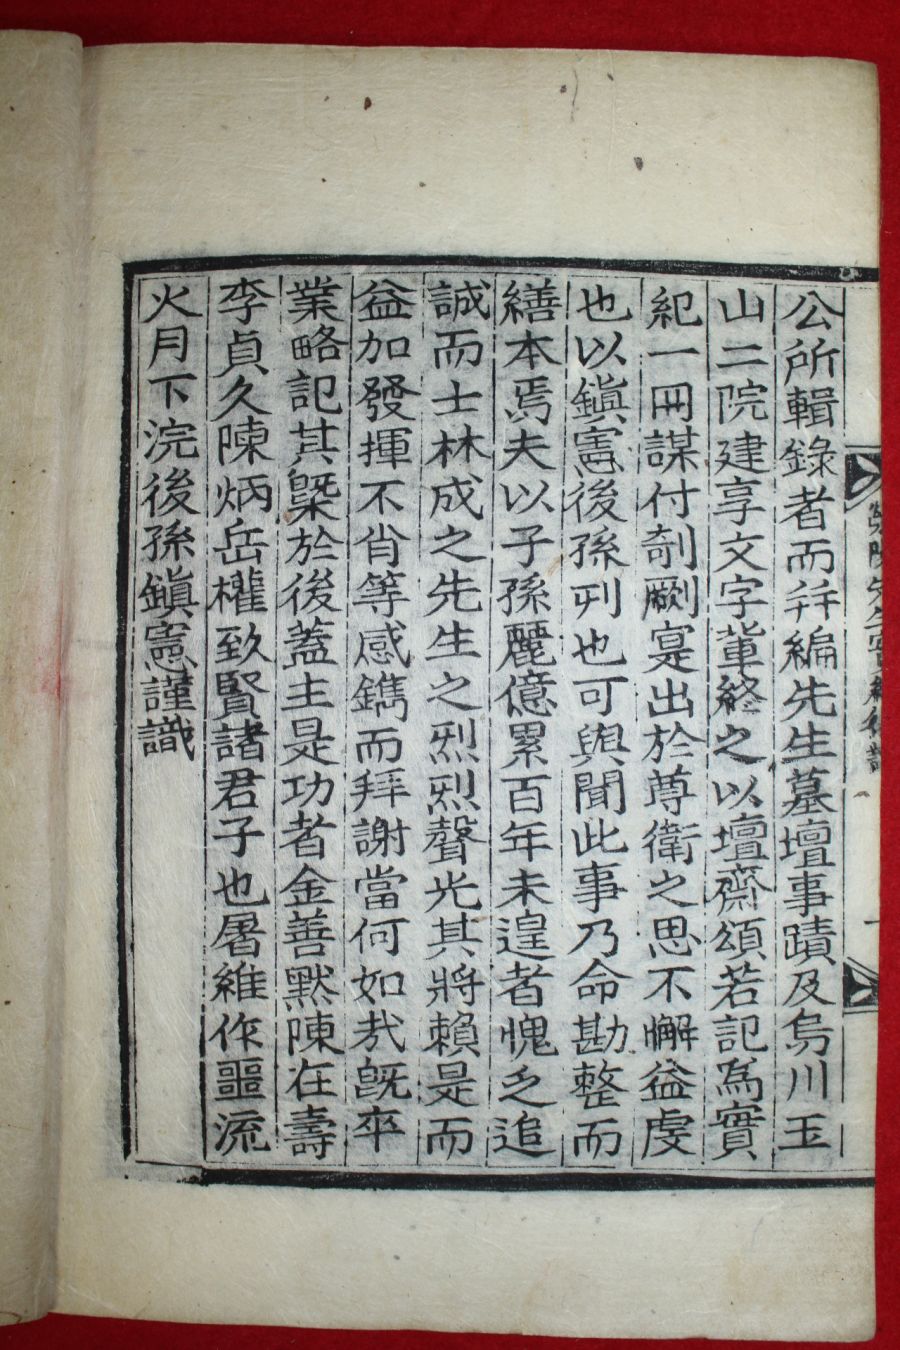 公所輯錄者而幷編先生墓壇事蹟及烏川玉
山二院建享文字輩終之以壇齋頌若記為實
紀一冊謀付剞劂寔出於尊衛之思不懈益虔
也以鎭憲後孫刓也可與聞此事乃命勘整而
繕本焉夫以子孫麗億累百年未遑者愧乏追
誠而士林成之先生之烈烈聲光其將賴是而
益加發揮不肖等感鐫而拜謝當何如哉旣卒
業略記其槩於後蓋主是功者金善默陳在壽
李貞久陳炳岳權致賢諸君子也屠維作噩流
火月下浣後孫鎭憲謹識
先生實紀後識
一